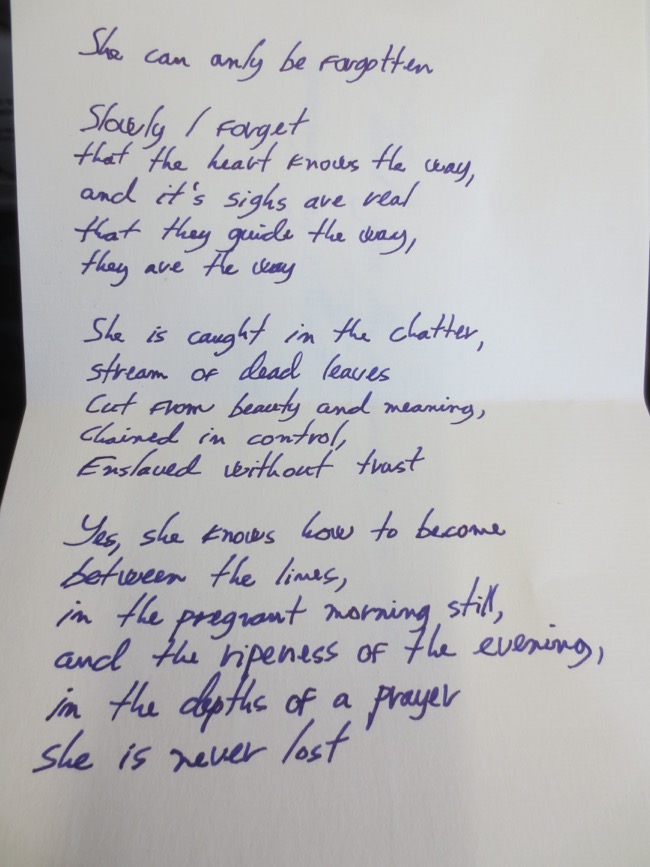 She can only be forgotten
Slowly I forget
that the heart knows the way,
and it's sighs are real
that they guide the way,
they are the way
She is caught in the chatter,
stream of dead leaves
Cut from beauty and meaning,
Chained in control,
Enslaved without trust
Yes, she knows how to become
between the lines,
in the pregnant morning still,
and the ripeness of the evening,
in the depths of a prayer
she is never lost